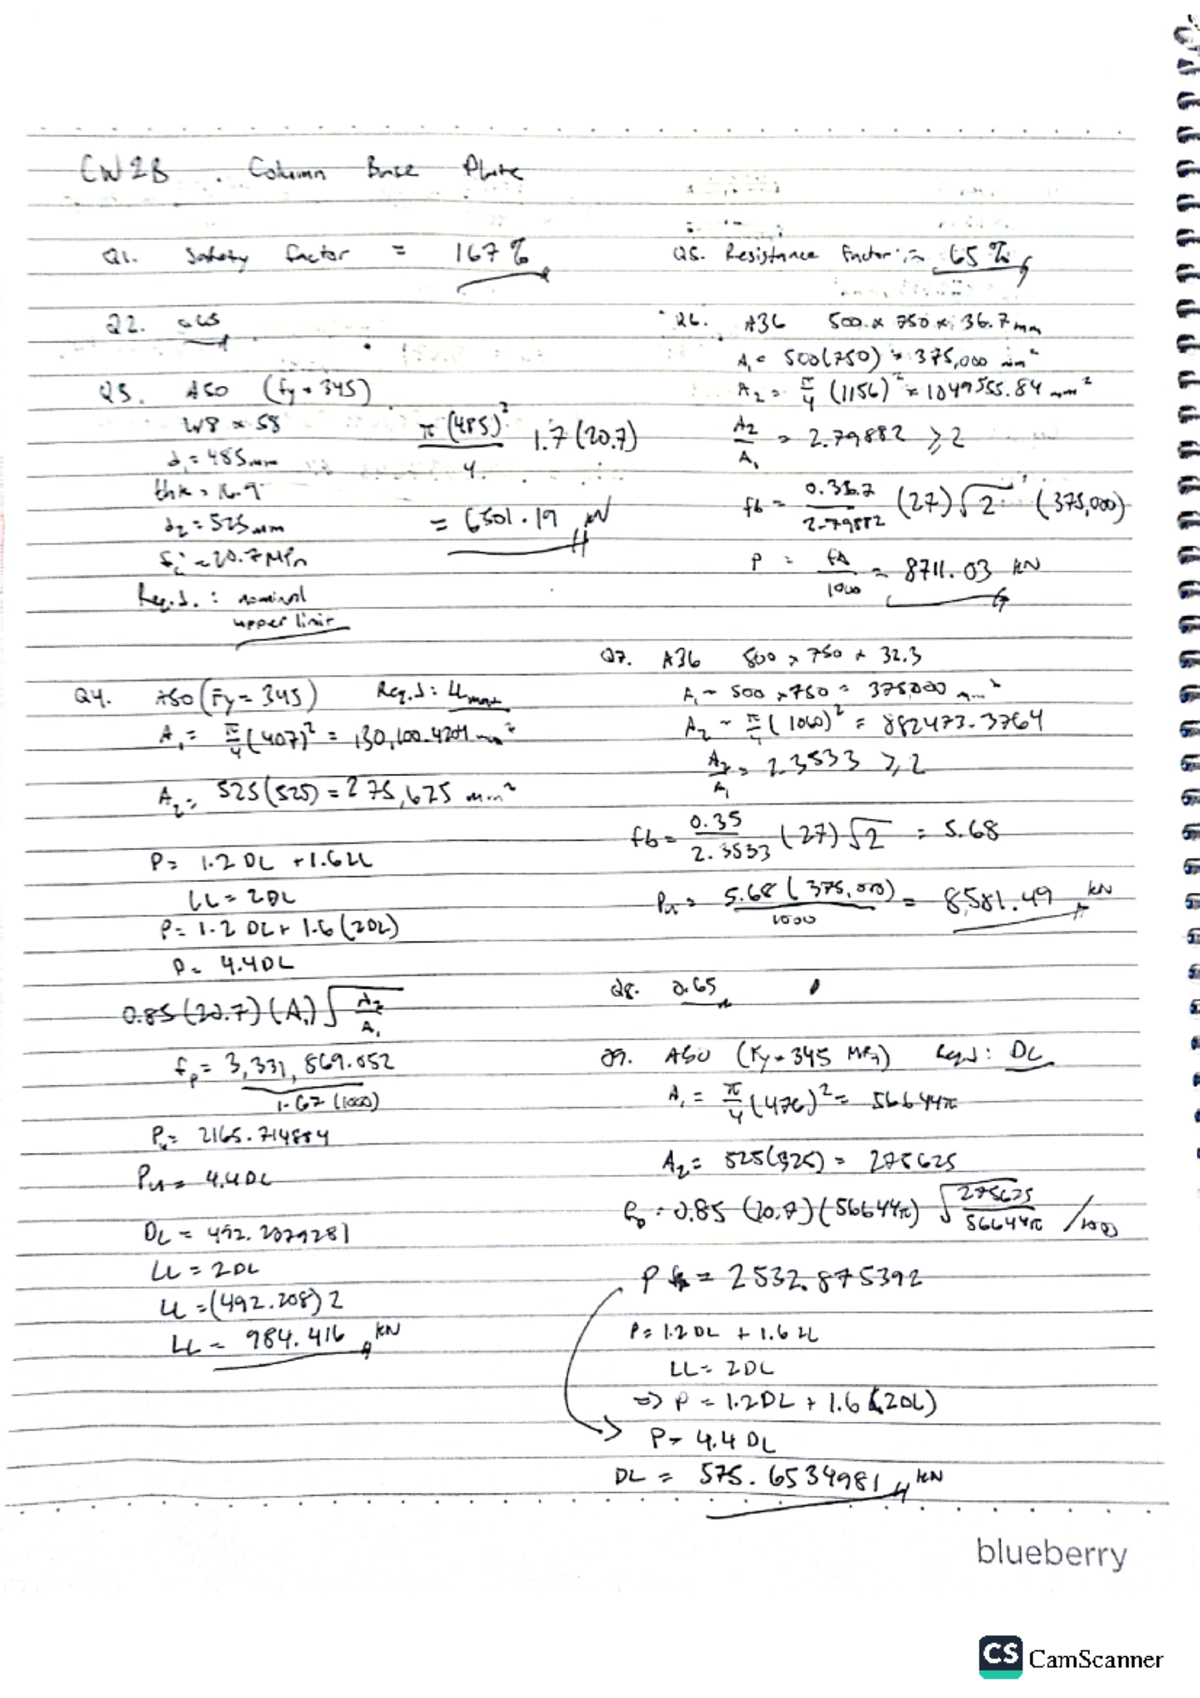 CW2B . Column Base Plate
Q1. Safety factor = 167%
Q2. 0.65
Q3. A50 (Fy = 345)
W8 x 58
d1 = 485mm
thk = 16.9
d2 = 525mm
fc' = 20.7 MPa
Req'd. : nominal
upper limit
π(485)² / 4 1.7(20.7)
= 6501.19 kN
Q4. A50 (Fy = 345) Req'd: LLmax
A1 = π/4 (407)² = 130,100.4204 mm²
A2 = 525(525) = 275,625 mm²
P = 1.2 DL + 1.6 LL
LL = 2DL
P = 1.2 DL + 1.6(2DL)
P = 4.4DL
0.85(20.7)(A1)√A2/A1
fp = 3,331,869.052 / 1.67(1000)
Pu = 2165.714884
Pu = 4.4DL
DL = 492.2079281
LL = 2DL
LL = (492.208)2
LL = 984.416 kN
Q5. Resistance Factor = 65%
Q6. A36 500 x 750 x 36.7mm
A1 = 500(750) = 375,000 mm²
A2 = π/4 (1156)² = 1049555.84 mm²
A2/A1 = 2.79882 ≥ 2
fb = / 2.79882 (27)√2 (375,000)
P = fA/1000 = 8711.03 kN
Q7. A36 500 x 750 x 32.3
A1 = 500 x 750 = 375000 mm²
A2 = π/4 (1060)² = 882473.3764
A2/A1 = 2.3533 ≥ 2
fb = 0.35/2.3533 (27)√2 = 5.68
Pu = 5.68(375,000)/1000 = 8,581.49 kN
Q8. 0.65
Q9. A50 (Fy = 345 MPa) Req'd: DL
A1 = π/4 (476)² = 56644π
A2 = 525(525) = 275625
fp = 0.85 (20.7)(56644π) √275625/56644π /1000
P = 2532.875392
P = 1.2 DL + 1.6 LL
LL = 2DL
=> P = 1.2DL + 1.6(2DL)
P = 4.4 DL
DL = 575.6534981 kN
blueberry
CS CamScanner